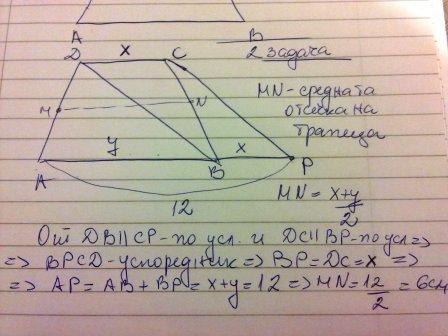 A B
2 задача
D x C
MN-средната
отсечка на
трапеца
M N
y x
A B P
MN = x+y/2
12
От DB||CP-по усл. и DC||BP-по усл =>
=> BPCD-успоредник => BP=DC=x =>
=> AP=AB+BP=x+y=12 => MN=12/2=6см